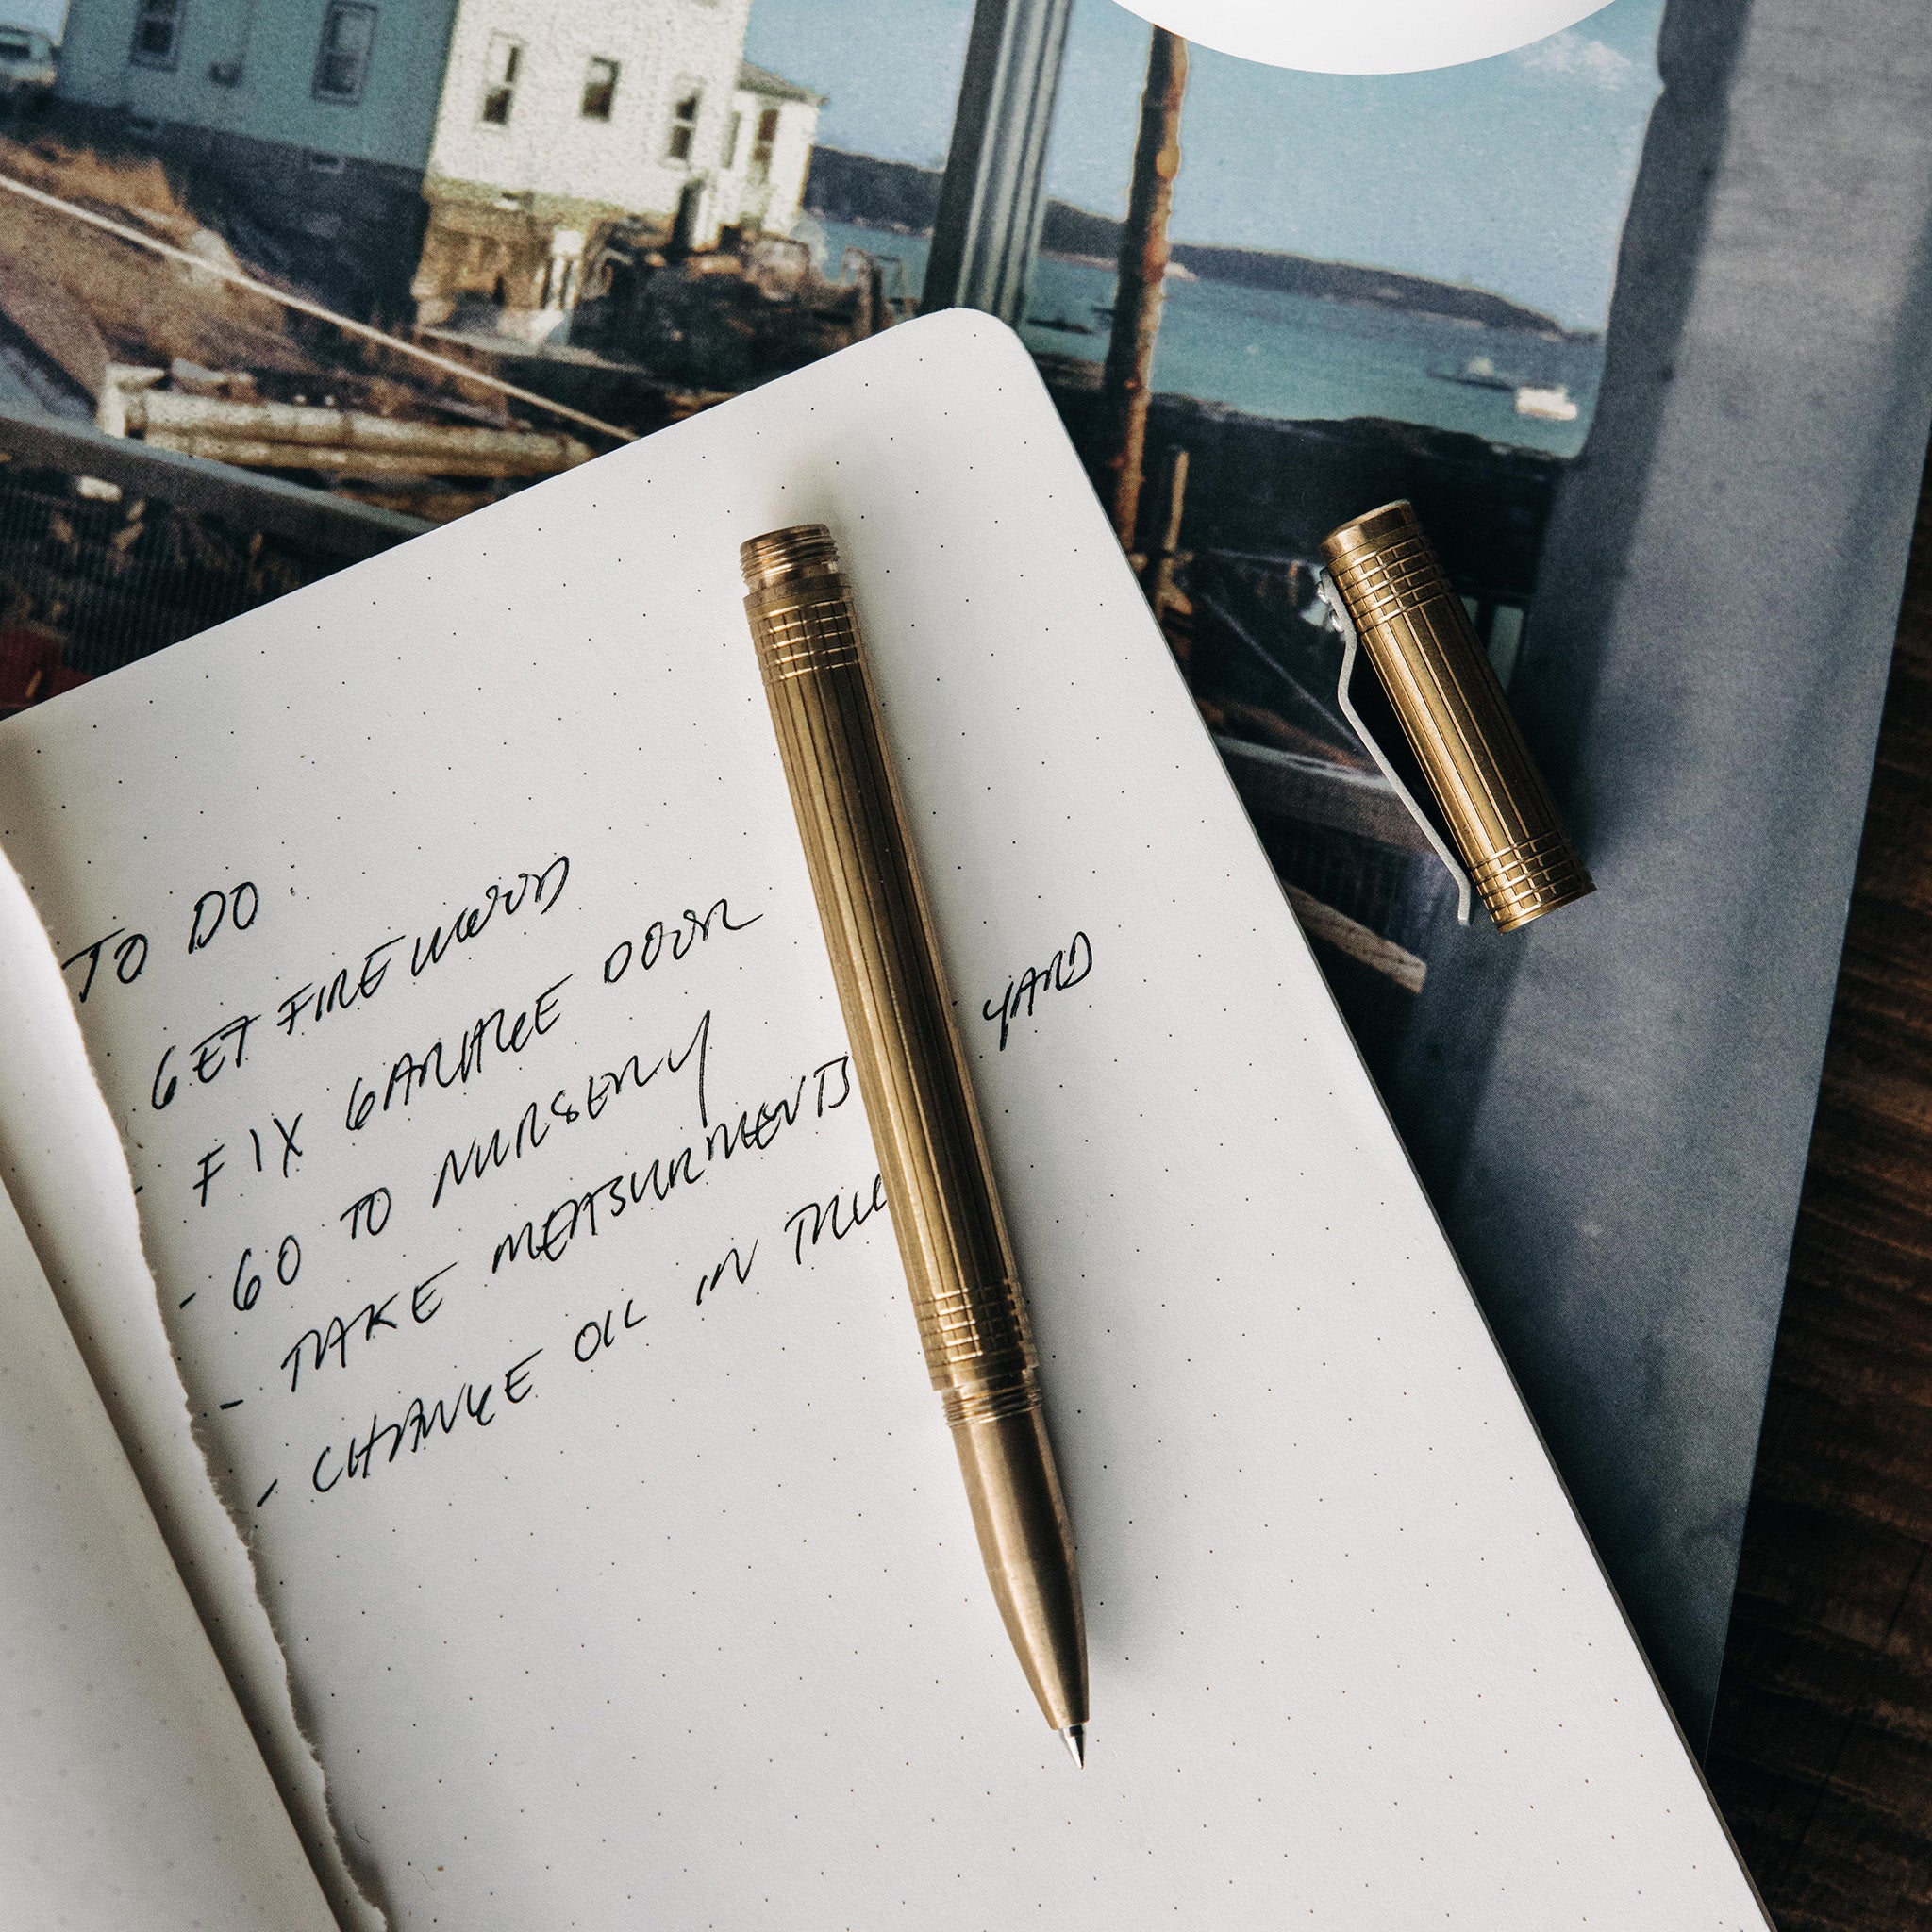 TO DO:
GET FIREWOOD
- FIX GARAGE DOOR
- GO TO NURSERY
- TAKE MEASURMENTS YARD
- CHANGE OIL IN TRU